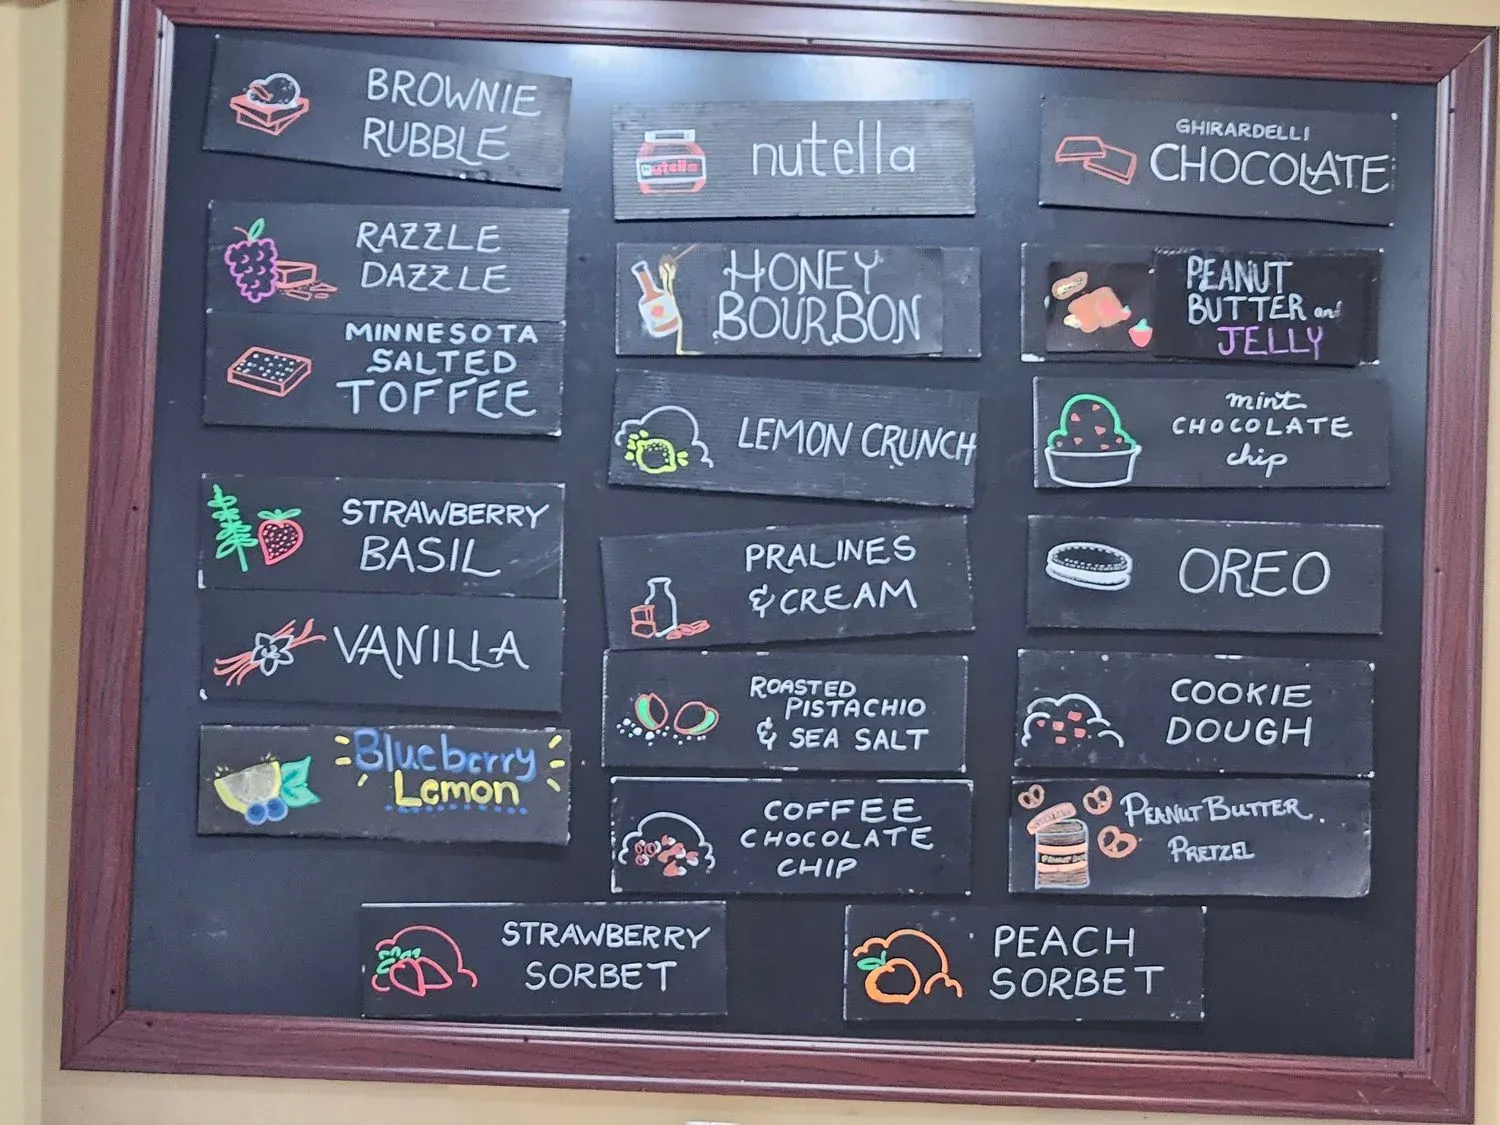 BROWNIE
RUBBLE
RAZZLE
DAZZLE
MINNESOTA
SALTED
TOFFEE
STRAWBERRY
BASIL
VANILLA
Blueberry
Lemon
Nutella
nutella
HONEY
BOURBON
LEMON CRUNCH
PRALINES
& CREAM
ROASTED
PISTACHIO
& SEA SALT
COFFEE
CHOCOLATE
CHIP
GHIRARDELLI
CHOCOLATE
PEANUT
BUTTER and
JELLY
mint
CHOCOLATE
chip
OREO
COOKIE
DOUGH
PEANUT BUTTER
PRETZEL
STRAWBERRY
SORBET
PEACH
SORBET